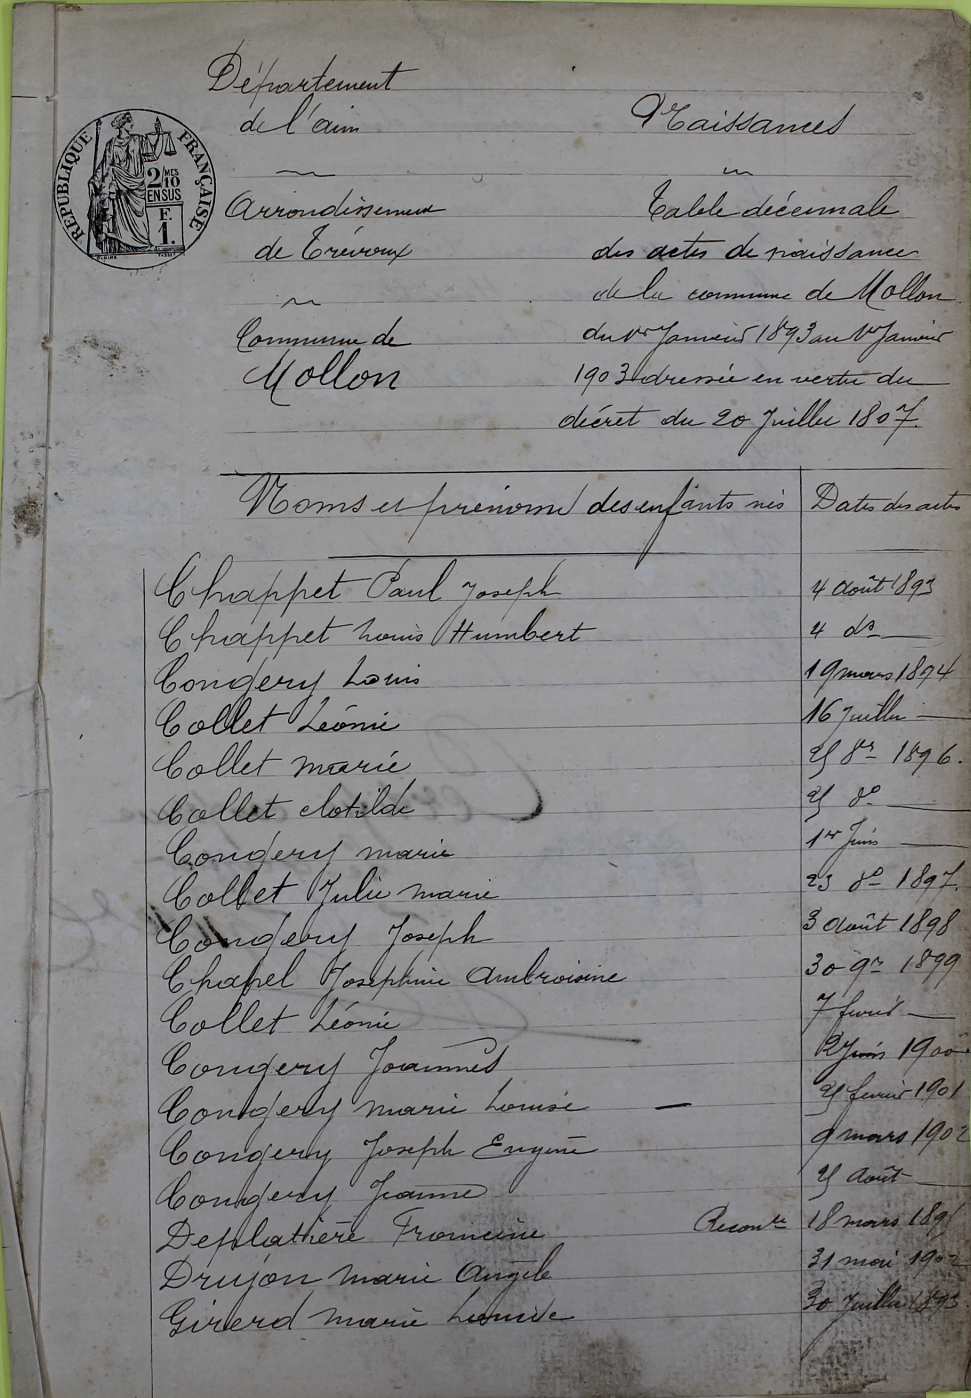 Département
de l'ain
Naissances
RÉPUBLIQUE FRANÇAISE
2/10 MES
EN SUS
F.
1.
Arrondissement
de Trévoux
Commune de
Mollon
Table décennale
des actes de naissance
de la commune de Mollon
du 1er Janvier 1893 au 1er Janvier
1903 dressée en vertu du
décret du 20 Juillet 1807.
Noms et prénoms des enfants nés | Dates des actes
Chappet Paul Joseph 4 août 1893
Chappet Louis Humbert 4 do
Congery Louis 19 mars 1894
Collet Léonie 16 Juillet
Collet marie 25 8re 1896.
Collet clotilde 25 do
Congery marie 1er Juin
Collet Julie marie 23 do 1897.
Congery Joseph 3 août 1898
Chapel Joséphine Ambroisine 30 9re 1899
Collet Léonie 7 fevrier
Congery Joannès Juin 1900
Congery marie Louise 25 fevrier 1901
Congery Joseph Eugène 9 mars 1902
Congery Jeanne 25 août
Deplathère Francine 18 mars
Drujon marie Angèle 31 mai 1902
Girerd marie Louise 30 Juillet 1893